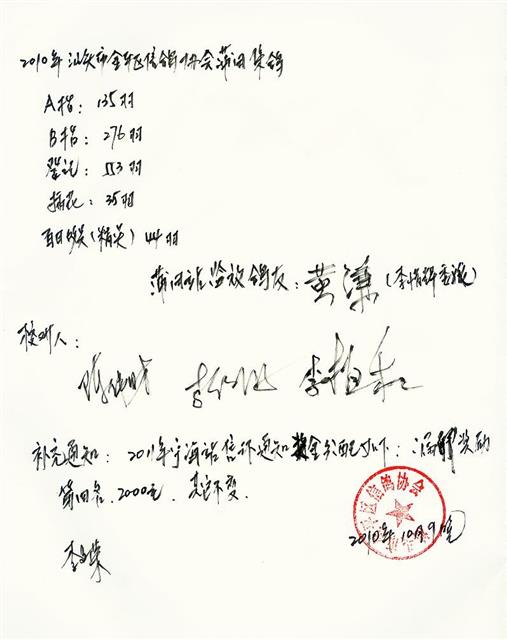 2010年汕头市金平区信鸽协会蒲田集鸽
A指: 135羽
B指: 276羽
登记: 553羽
插花: 35羽
百日娱(精英) 44羽
蒲田站监放鸽友: 黄濂 (李惜辉委派)
校对人:
李植和
补充通知: 2011年宁海站信协通知奖金分配如下: 奖励
第四名. 2000元. 其它不变.
区信鸽协会
2010年10月9日
李